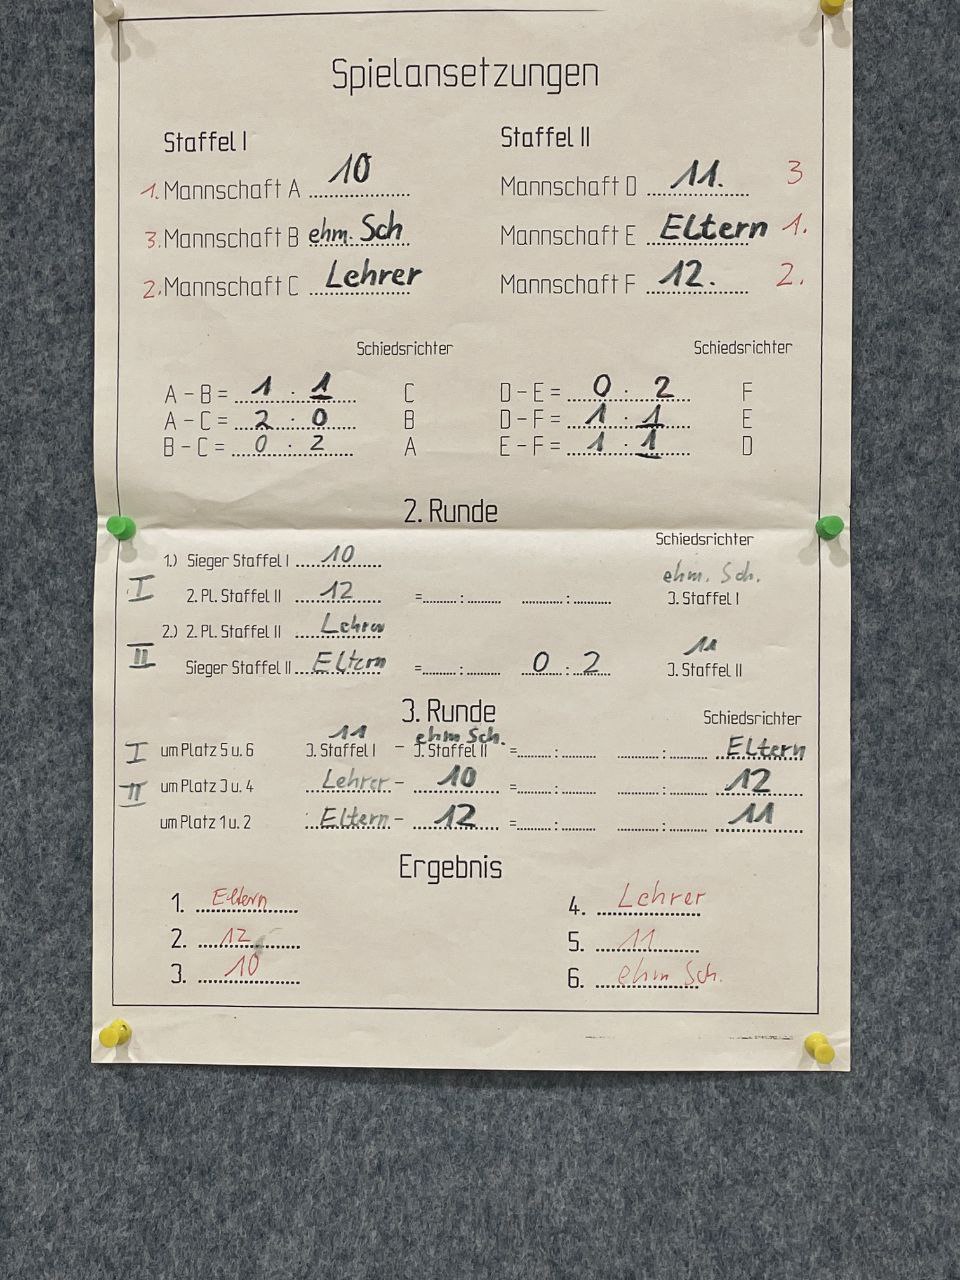 Spielansetzungen
Staffel I
Staffel II
1. Mannschaft A 10
Mannschaft D 11. 3
3. Mannschaft B ehm. Sch
Mannschaft E Eltern 1.
2. Mannschaft C Lehrer
Mannschaft F 12. 2.
Schiedsrichter
Schiedsrichter
A - B = 1 : 1 C
D - E = 0 : 2 F
A - C = 2 : 0 B
D - F = 1 : 1 E
B - C = 0 : 2 A
E - F = 1 : 1 D
2. Runde
Schiedsrichter
1.) Sieger Staffel I 10
ehm. Sch.
I 2. Pl. Staffel II 12 = : : 3. Staffel I
2.) 2. Pl. Staffel II Lehrer
11
II Sieger Staffel II Eltern = : 0 : 2 3. Staffel II
3. Runde
Schiedsrichter
11 ehm Sch.
I um Platz 5 u. 6 3. Staffel I - 3. Staffel II = : : Eltern
II um Platz 3 u. 4 Lehrer - 10 = : : 12
um Platz 1 u. 2 Eltern - 12 = : : 11
Ergebnis
1. Eltern
4. Lehrer
2. 12
5. 11
3. 10
6. ehm Sch.